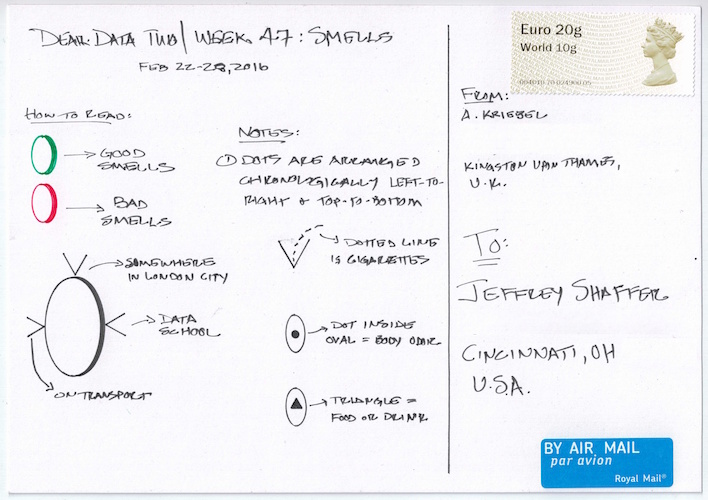 DEAR DATA TWO / WEEK 47: SMELLS
FEB 22-28, 2016
HOW TO READ:
GOOD
SMELLS
BAD
SMELLS
SOMEWHERE
IN LONDON CITY
DATA
SCHOOL
ON TRANSPORT
NOTES:
① DOTS ARE ARRANGED
CHRONOLOGICALLY LEFT-TO-
RIGHT & TOP-TO-BOTTOM
DOTTED LINE
IS CIGARETTES
DOT INSIDE
OVAL = BODY ODOR
TRIANGLE =
FOOD OR DRINK
Euro 20g
World 10g
FROM:
A. KRIEBEL
KINGSTON UPON THAMES,
U.K.
TO:
JEFFREY SHAFFER
CINCINNATI, OH
U.S.A.
BY AIR MAIL
par avion
Royal Mail®